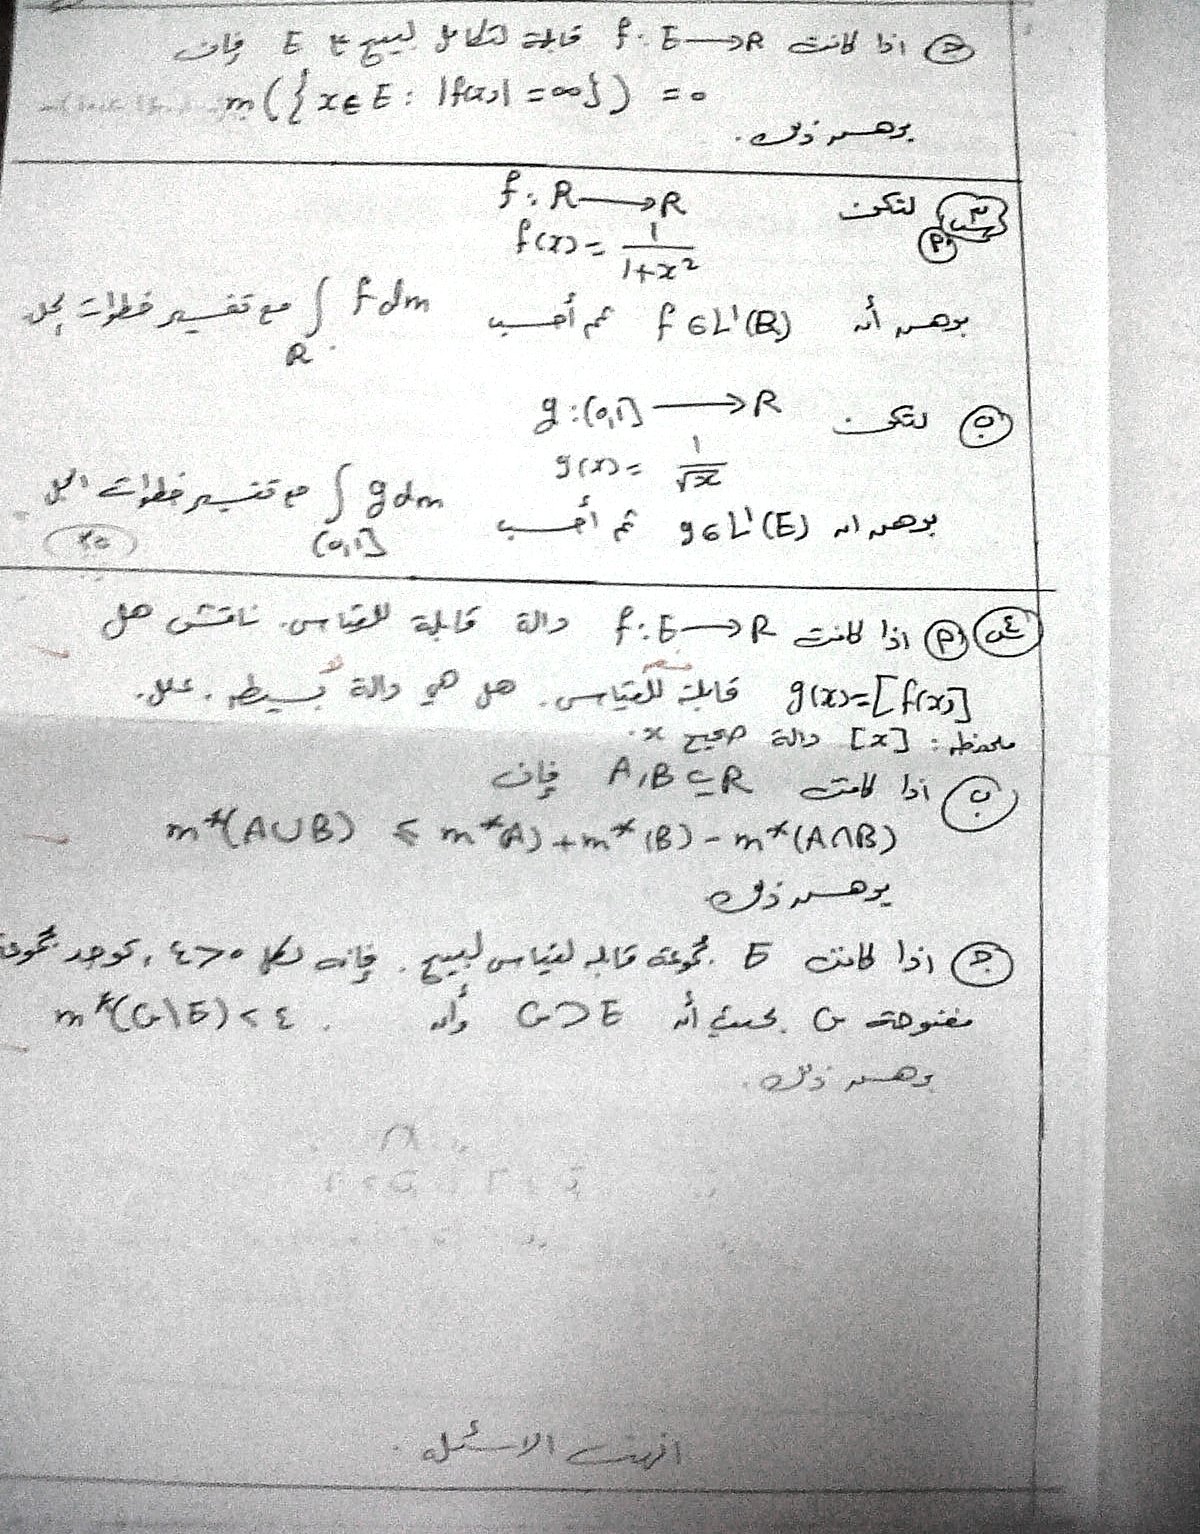 ج اذا كانت f: E→R قابلة لتكامل لبيج على E فإن
m({x∈E: |f(x)| = ∞}) = 0
برهن ذلك.
س٣ لتكن f: R→R
أ f(x) = 1/(1+x²)
برهن أن f∈L¹(R) ثم أحسب ∫_R f dm مع تفسير خطوات الحل
ب لتكن g: (0,1]→R
g(x) = 1/√x
برهن ان g∈L¹(E) ثم أحسب ∫_(0,1] g dm مع تفسير خطوات الحل
٢٥
س٤ أ اذا كانت f: E→R دالة قابلة للقياس. ناقش هل
g(x)=[f(x)] قابلة للقياس. هل هي دالة بسيطه. علل.
ملاحظه: [x] دالة صحيح x.
ب اذا كانت A,B⊆R فإن
m*(A∪B) ≤ m*(A)+m*(B)-m*(A∩B)
برهن ذلك
ج اذا كانت E مجموعة قابلة لقياس لبيج. فإنه لكل ε>0، توجد مجموعة
مفتوحة G بحيث أن G⊃E وأن m*(G\E)<ε.
برهن ذلك.
انتهت الاسئله.